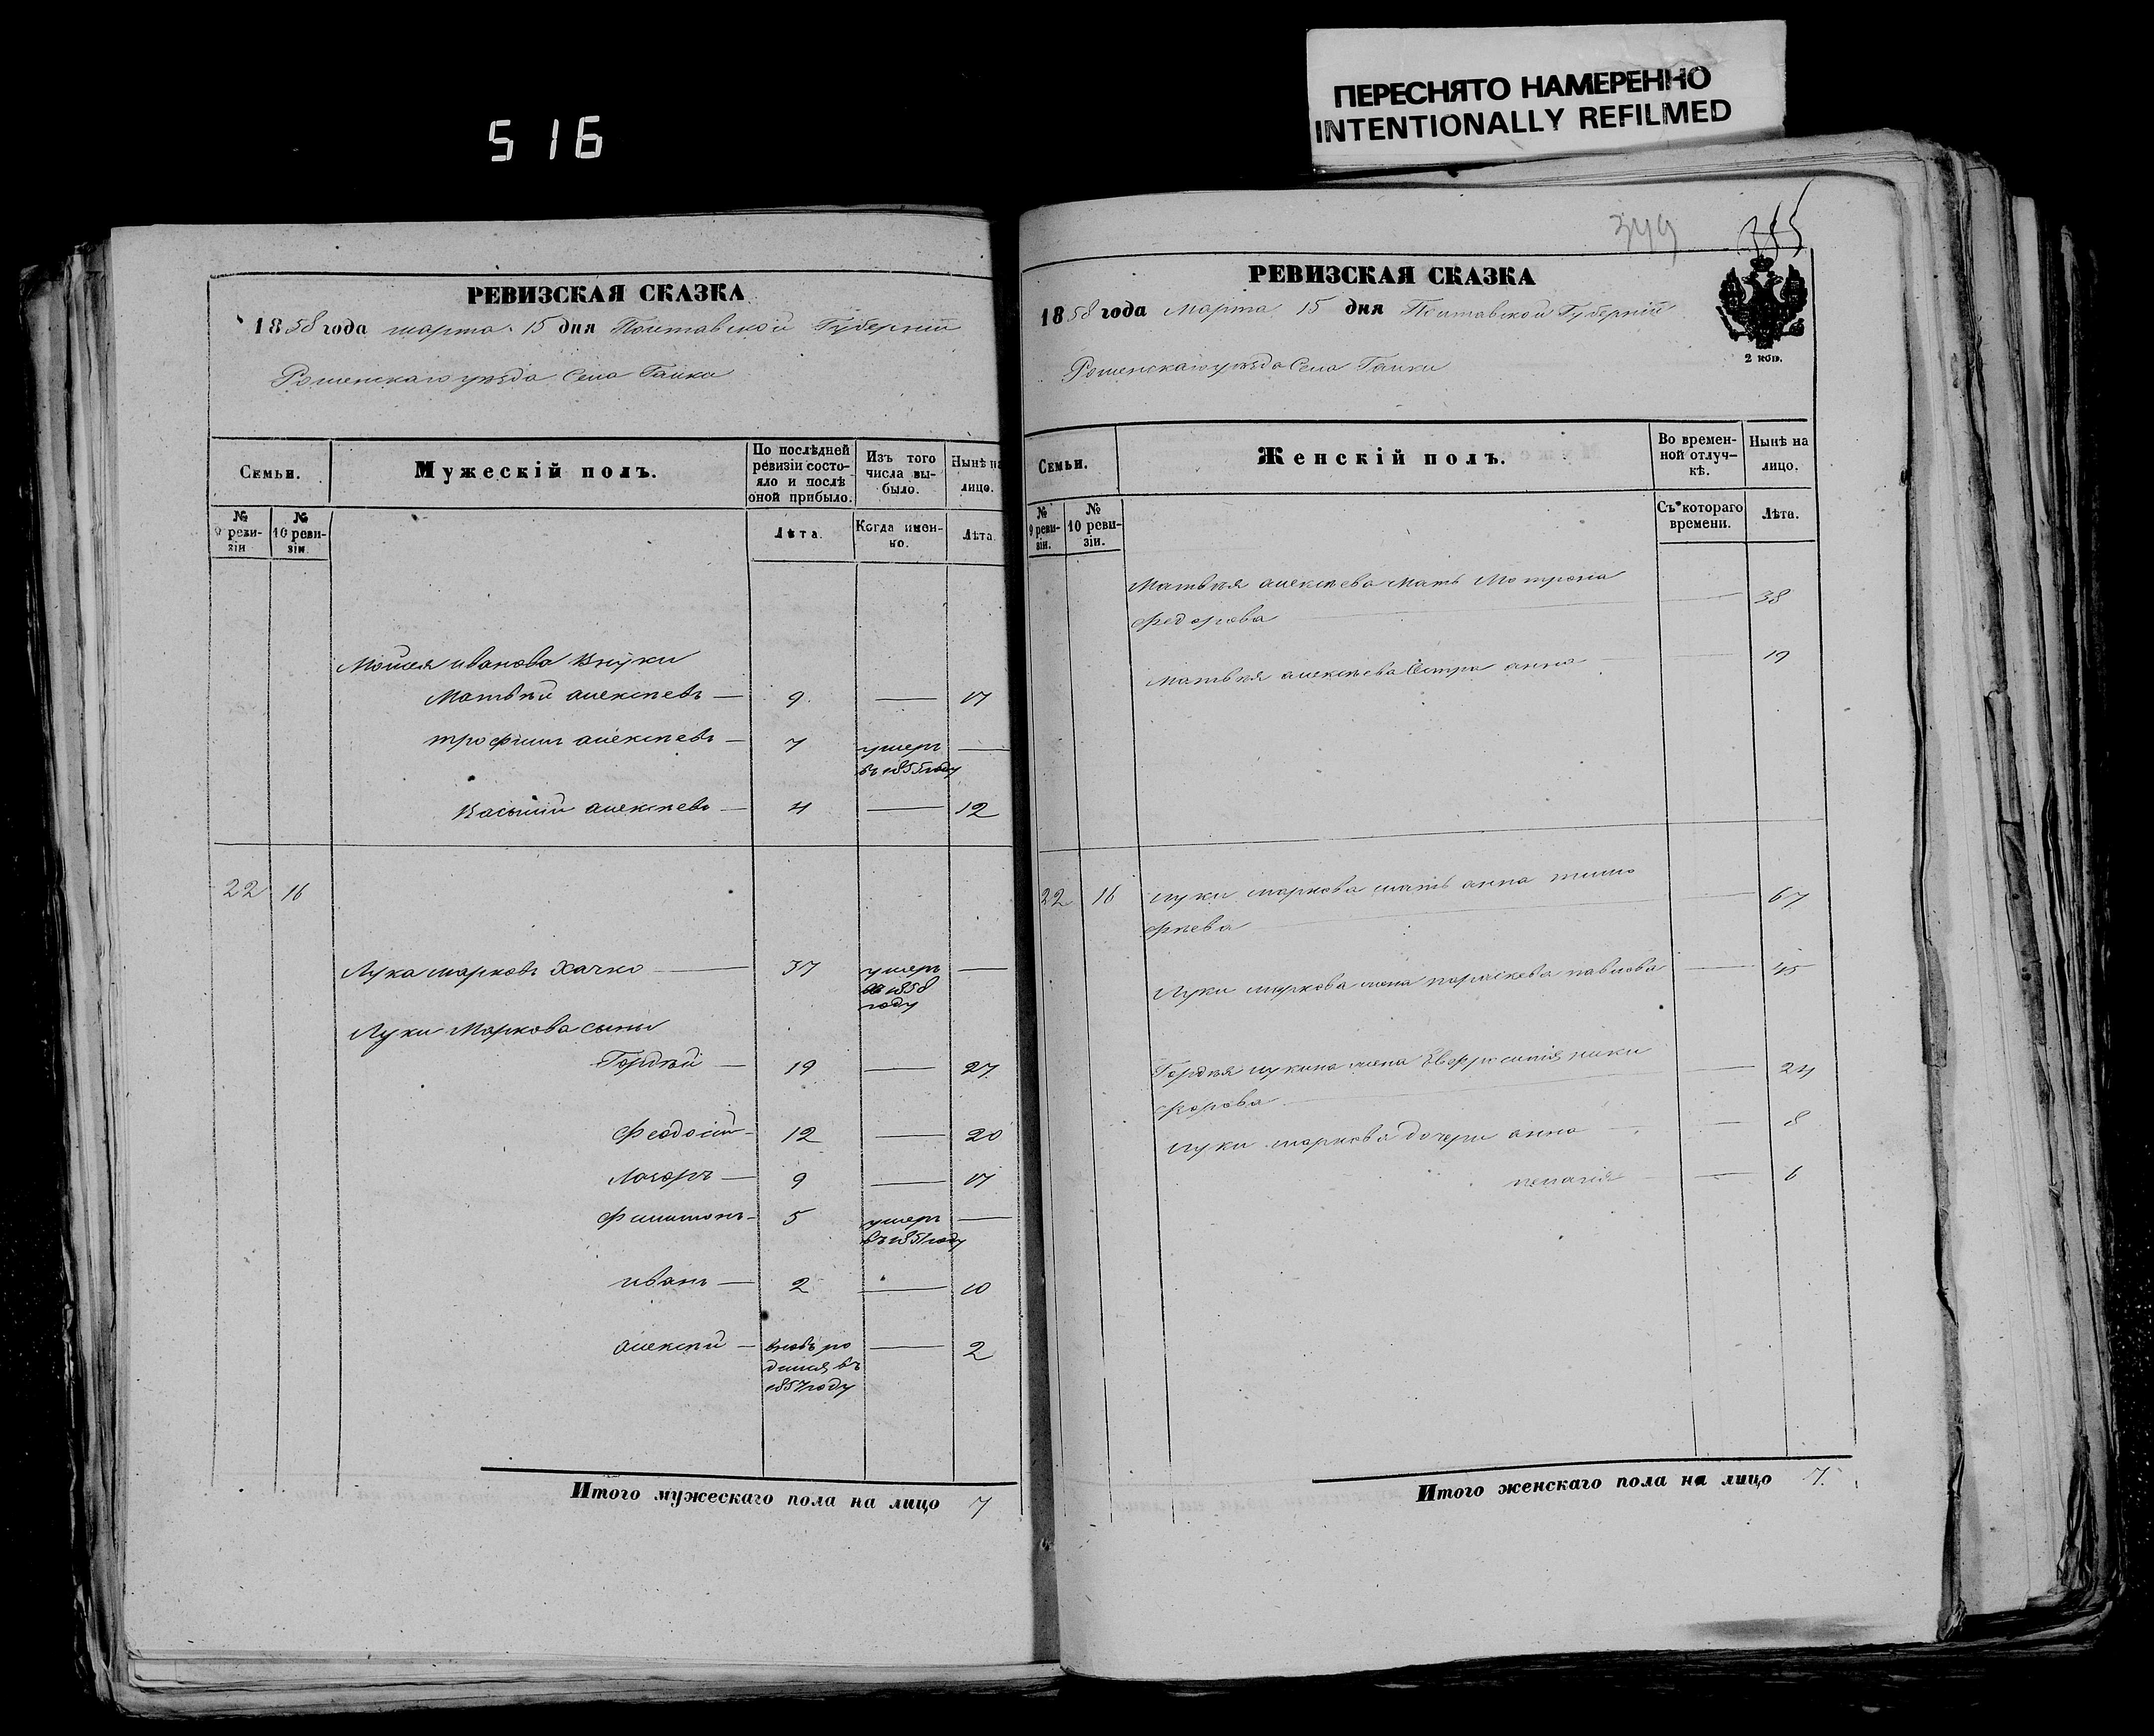 516
ПЕРЕСНЯТО НАМЕРЕННО
INTENTIONALLY REFILMED
РЕВИЗСКАЯ СКАЗКА
1858 года марта 15 дня Полтавской Губернiи
Роменскаго уѣзда Села Галки
Семьи.
Мужескій полъ.
По послѣдней ревизіи состояло и послѣ оной прибыло.
Изъ того числа выбыло.
Нынѣ на лицо.
№ 9 ревизіи
№ 10 ревизіи.
Лѣта.
Когда именно.
Лѣта.
Мойсея иванова внуки
Матвѣй алексѣевъ — 9 — 17
трофимъ алексѣевъ — 7 умеръ —
въ 1855 году
Василий алексѣевъ — 4 — 12
22 16
Лука марковъ Хачко — 37 умеръ —
въ 1858
году
Луки Маркова сыны
Гордѣй — 19 — 27
Феодосій — 12 — 20
Лазарь — 9 — 17
Филимонъ — 5 умеръ —
въ 1851 году
иванъ — 2 — 10
алексѣй — вновь ро — 2
дился въ
1857 году
Итого мужескаго пола на лицо 7
349
355
РЕВИЗСКАЯ СКАЗКА
1858 года Марта 15 дня Полтавской Губернiи
2 коп.
Роменскаго уѣзда Села Галки
Семьи.
Женскій полъ.
Во временной отлучкѣ.
Нынѣ на лицо.
№ 9 ревизіи.
№ 10 ревизіи.
Съ котораго времени.
Лѣта.
Матвѣя алексѣева мать Мотрона
Федорова — 38
Матвѣя алексѣева Сестра анна — 19
22 16 луки маркова мать анна тимо
фѣева — 67
Луки маркова жена параскева павлова — 45
Гордѣя лукина жена Евфросинія ники
форова — 24
луки маркова дочери анна — 8
пелагія — 6
Итого женскаго пола на лицо 7.